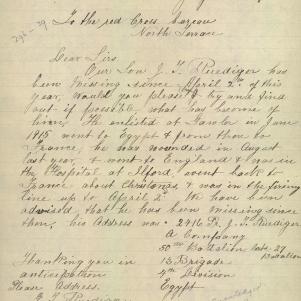 To the red Cross bureau
North Terrace
Dear Sirs
Our Son J. T. Ruediger has
been Missing since April 2nd of this
year, would you please try and find
out if possible what has become of
him. He enlisted at Gawler in June
1915 went to Egypt & from there to
France, he was wounded in August
last year & went to England & was in
the Hospital at Ilford, went back to
France about Christmas, & was in the firing
line up to April 2. We have been
advised that he has been missing since
then, his Address was 2416 Pr. J. T. Ruediger
A Company
50th Battalion late 27
Battalion
Thanking you in
13 Brigade
anticipation
4th Division
Please Address.
Egypt
Ruediger